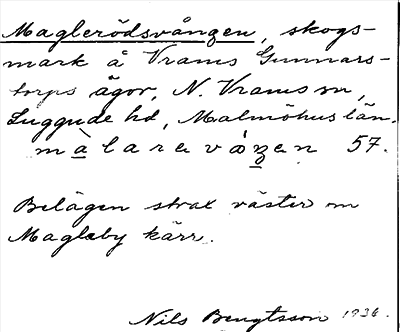 Maglerödsvången, skogs-
mark å Vrams Gunnars-
torps ägor, N. Vrams sn,
Luggude hd, Malmöhus län.
màlaravåŋen 57.
Belägen strax väster om
Magleby kärr.
Nils Bengtsson 1936.